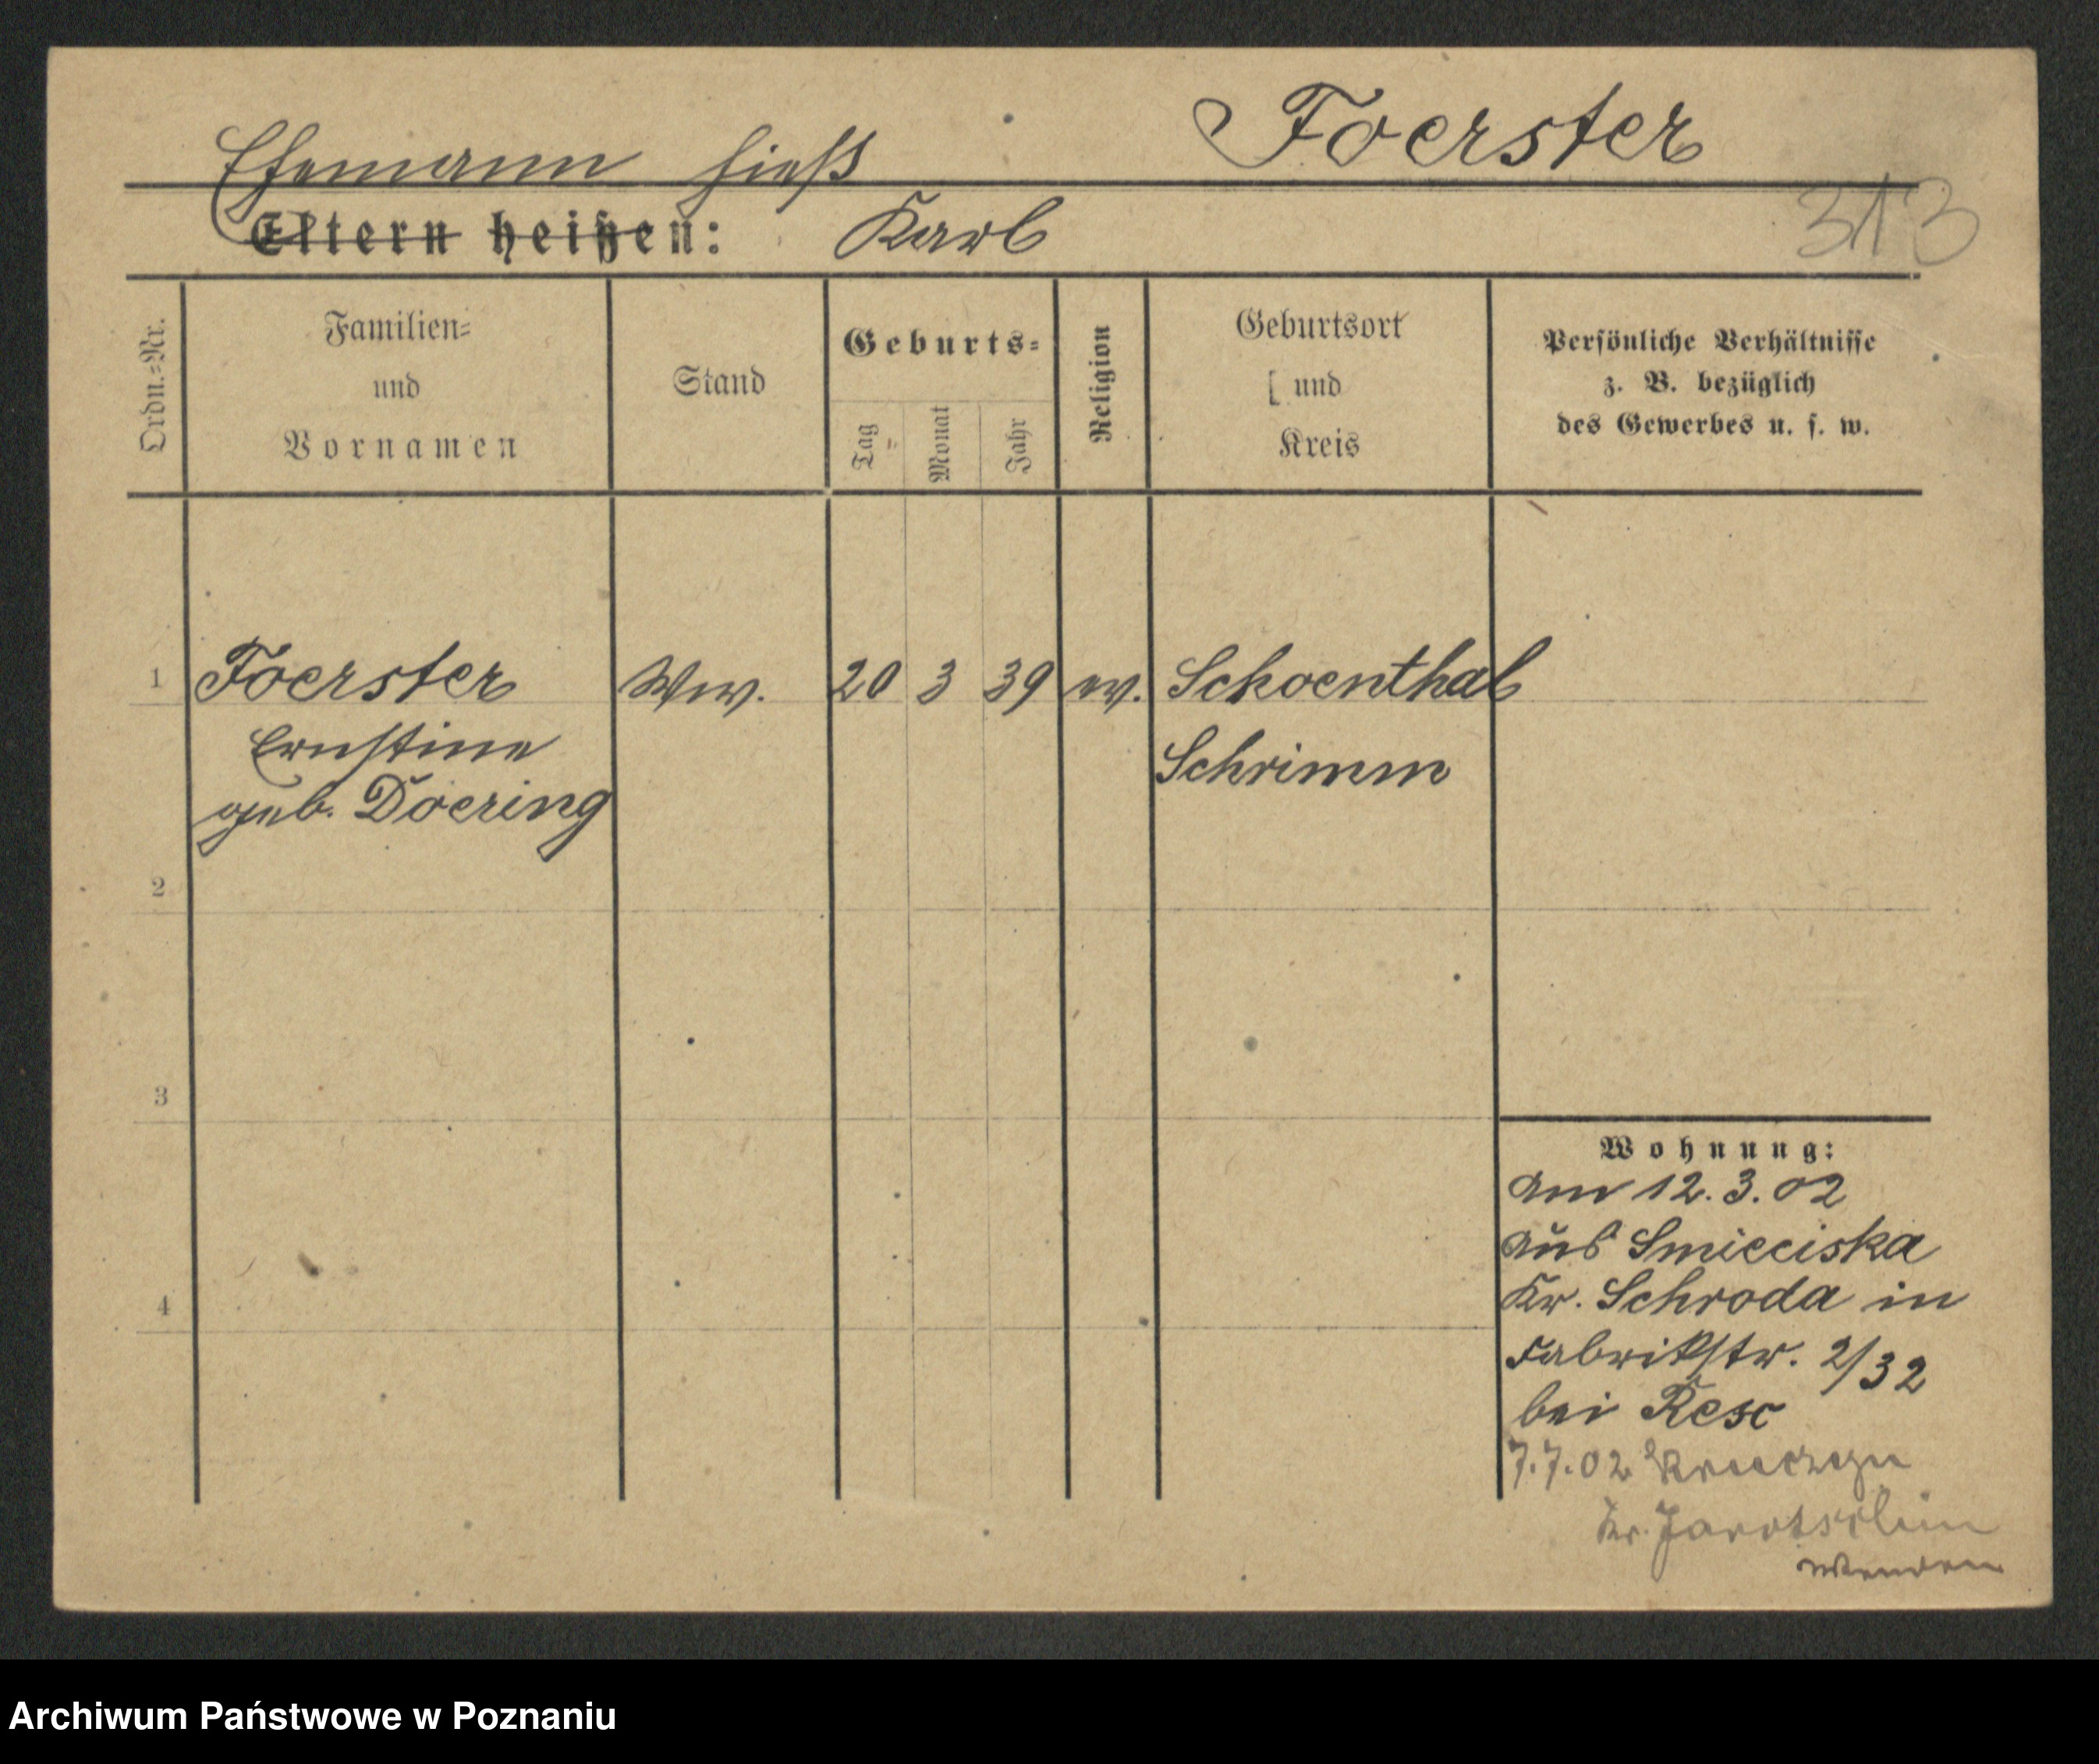 Foerster
Ehemann hieß
Eltern heißen: Karl
313
Ordn.-Nr.
Familien-
und
Vornamen
Stand
Geburts-
Tag
Monat
Jahr
Religion
Geburtsort
[ und
Kreis
Persönliche Verhältnisse
z. B. bezüglich
des Gewerbes u. s. w.
1 Foerster Ww. 20 3 39 ev. Schoenthal
Ernstine Schrimm
geb. Doering
2
3
4
Wohnung:
am 12.3.02
aus Smieciska
Kr. Schroda in
Fabrikstr. 2/32
bei Resc
7.7.02
Kr. Jarotschin
wenden
Archiwum Państwowe w Poznaniu